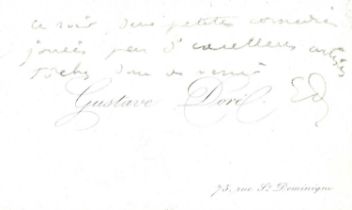 ce soir, deux petites comédies
jouées par d'excellents artistes
Gustave Doré.
75, rue St. Dominique